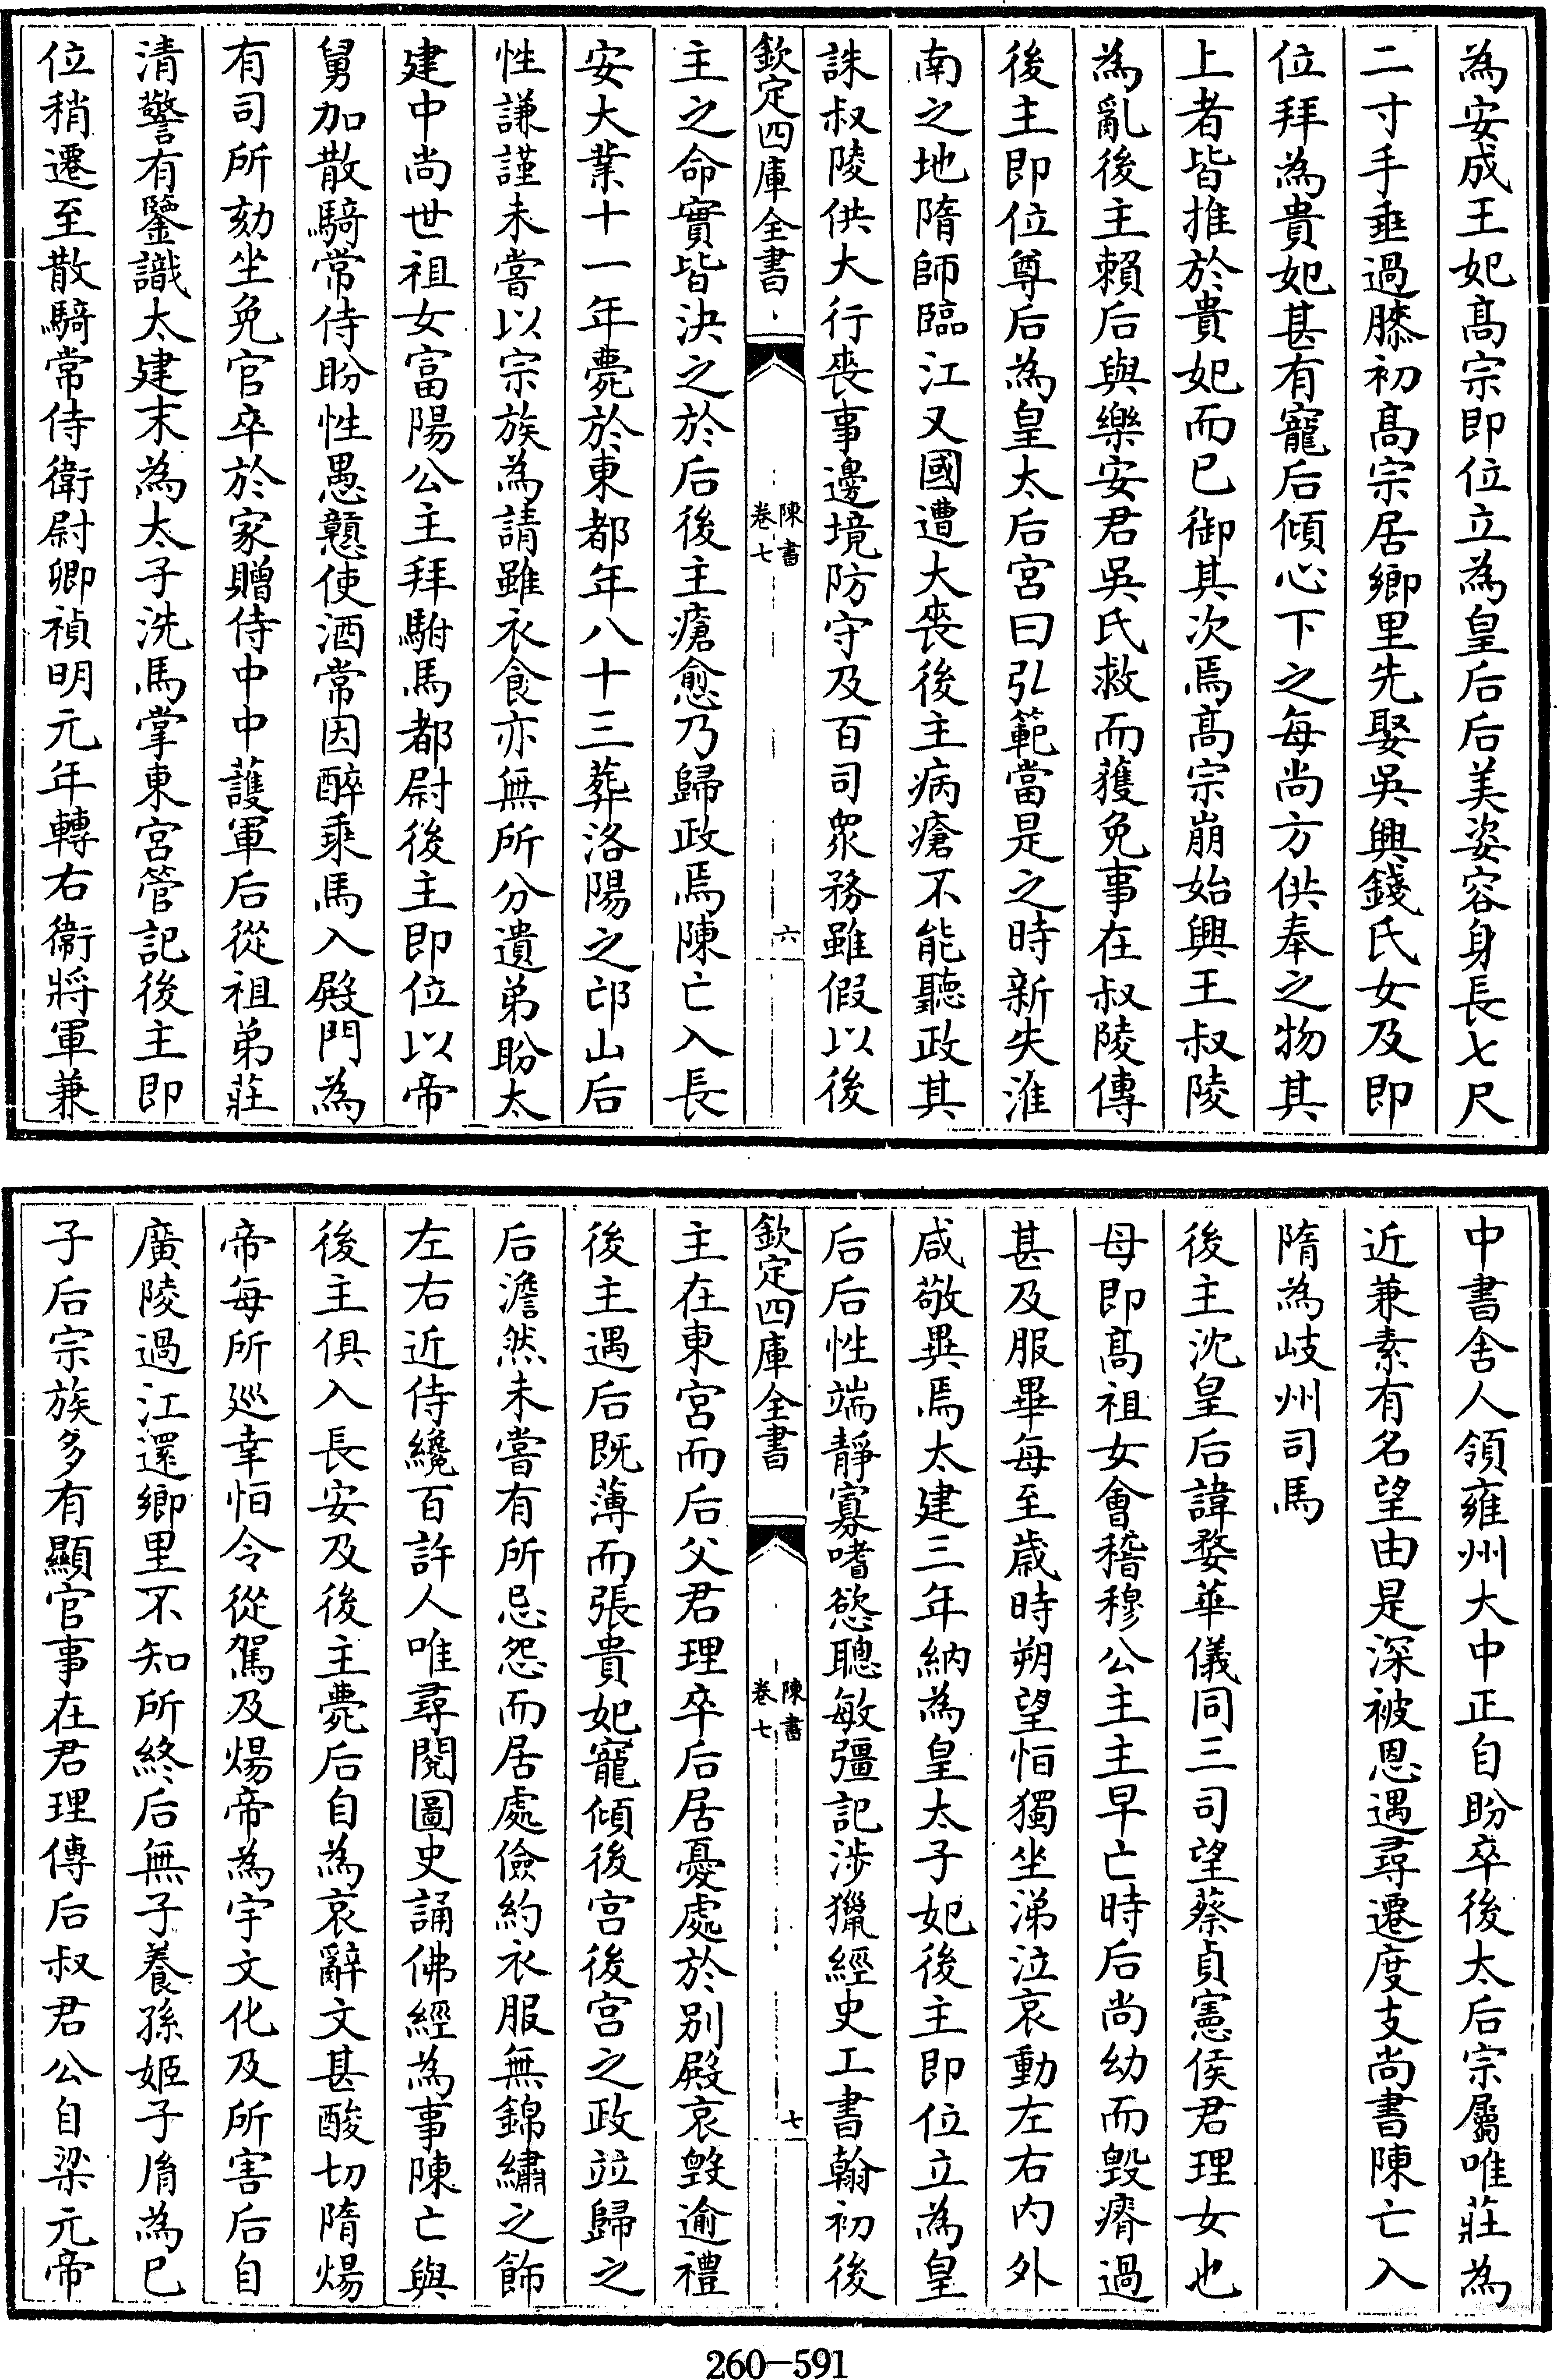 為安成王妃髙宗即位立為皇后后美姿容身長七尺
二寸手垂過膝初髙宗居鄉里先娶吳興錢氏女及即
位拜為貴妃甚有寵后傾心下之每尚方供奉之物其
上者皆推於貴妃而已御其次焉髙宗崩始興王叔陵
為亂後主賴后與樂安君吳氏救而獲免事在叔陵傳
後主即位尊后為皇太后宮曰弘範當是之時新失淮
南之地隋師臨江又國遭大喪後主病瘡不能聽政其
誅叔陵供大行喪事邊境防守及百司衆務雖假以後
欽定四庫全書
陳書
卷七
六
主之命實皆決之於后後主瘡愈乃歸政焉陳亡入長
安大業十一年薨於東都年八十三葬洛陽之邙山后
性謙謹未嘗以宗族為請雖衣食亦無所分遺弟盼太
建中尚世祖女富陽公主拜駙馬都尉後主即位以帝
舅加散騎常侍盼性愚戇使酒常因醉乘馬入殿門為
有司所劾坐免官卒於家贈侍中中護軍后從祖弟莊
清警有鑒識太建末為太子洗馬掌東宮管記後主即
位稍遷至散騎常侍衛尉卿禎明元年轉右衞將軍兼
中書舍人領雍州大中正自盼卒後太后宗屬唯莊為
近兼素有名望由是深被恩遇尋遷度支尚書陳亡入
隋為岐州司馬
後主沈皇后諱婺華儀同三司望蔡貞憲侯君理女也
母即髙祖女會稽穆公主主早亡時后尚幼而毀瘠過
甚及服畢每至歲時朔望恒獨坐涕泣哀動左右内外
咸敬異焉太建三年納為皇太子妃後主即位立為皇
后后性端靜寡嗜慾聰敏彊記涉獵經史工書翰初後
欽定四庫全書
陳書
卷七
七
主在東宮而后父君理卒后居憂處於别殿哀毀逾禮
後主遇后既薄而張貴妃寵傾後宮後宮之政竝歸之
后澹然未嘗有所忌怨而居處儉約衣服無錦繡之飾
左右近侍纔百許人唯尋閱圖史誦佛經為事陳亡與
後主俱入長安及後主薨后自為哀辭文甚酸切隋煬
帝每所廵幸恒令從駕及煬帝為宇文化及所害后自
廣陵過江還鄉里不知所終后無子養孫姬子胤為已
子后宗族多有顯官事在君理傳后叔君公自梁元帝
260-591